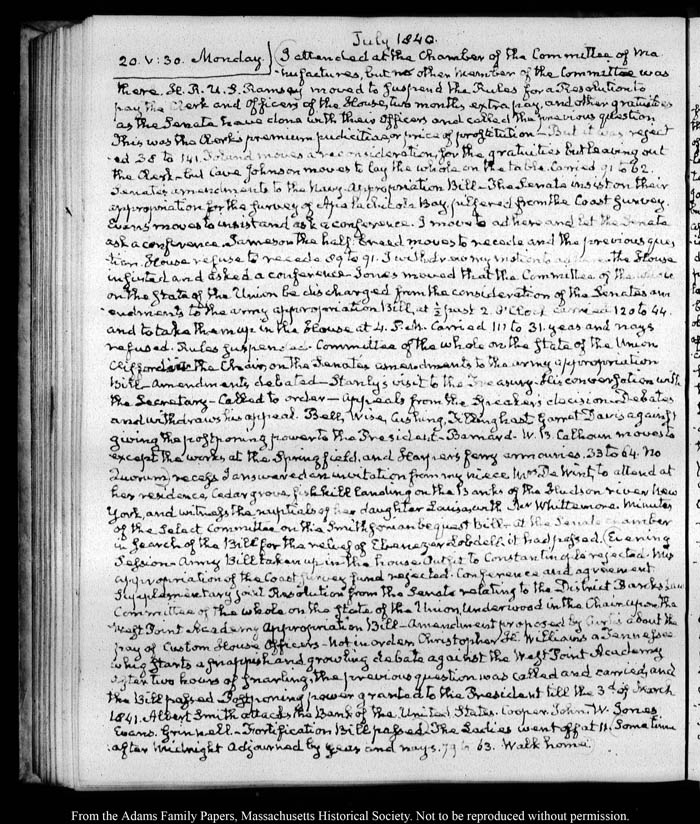 July 1840.
20. V:30. Monday. I attended at the Chamber of the Committee of Ma-
nufactures, but no other member of the Committee was
there. H. R. U. S. Ramsey moved to suspend the Rules for a Resolution to
pay the Clerk and Officers of the House, two months extra pay, and other gratuities
as the Senate have done with their Officers and called the previous question
This was the Clerk's premium pudicitiae, or price of prostitution— But it was reject
ed 38 to 141. moves a reconsideration, for the gratuities but leaving out
the Clerk— but Cave Johnson moves to lay the whole on the table. Carried 91 to 62.
Senates amendments to the Navy Appropriation Bill— The Senate insist on their
appropriation for the survey of Apalachicola Bay, pilfered from the Coast Survey.
Evans moves to insist and ask a conference. I move to adhere and let the Senate
ask a conference. Jameson the half. moves to recede and the previous ques
tion. House refuse to recede 89 to 91. I withdraw my motion to adhere. the House
insisted and asked a conference— Jones moved that the Committee of the whole
on the State of the Union be discharged from the consideration of the Senates am
endments to the army appropriation Bill, at ½ past 2. O'Clock carried 120 to 44.
and to take them up in the House at 4. P.M. Carried 111 to 31. yeas and nays
refused. Rules suspended. Committee of the whole on the State of the Union
Clifford in the Chair, on the Senates amendments to the army appropriation
bill— Amendments debated— Stanly's visit to the Treasury. His conversation with
the Secretary— Called to order— Appeals from the Speaker's decision— Debates
and withdraws his appeal. Bell, Wise, Cushing, Tillinghast Garret Davis against
giving the postponing power to the President— Barnard. W. B. Calhoun moves to
except the works at the Springfield, and Harper's ferry armouries. 33 to 64. No
Quorum, recess I answered an invitation from my niece Mrs. De Wint, to attend at
her residence, Cedar grove, fishkill landing on the Banks of the Hudson river New
York, and witness the nuptials of her daughter Louisa, with Mr Whittemore. Minutes
of the Select Committee on the Smithsonian bequest Bill— at the Senate chamber
in search of the Bill for the relief of Ebenezer Lobdell. it had passed. (Evening
Session— Army Bill taken up in the house. Outfit to Constantinople rejected. Mis
appropriation of the Coast survey fund rejected. Conference and agreement
Supplementary joint Resolution from the Senate relating to the District Banks.
Committee of the whole on the State of the Union, Underwood in the Chair, upon the
West Point Academy Appropriation Bill— Amendment proposed by Curtis about the
pay of Custom House Officers— Not in order. Christopher H. Williams a Tennessee
whig starts a snappish and growling debate against the West Point Academy
after two hours of snarling, the previous question was called and carried, and
the Bill passed. Postponing power granted to the President till the 3d. of March
1841. Albert Smith attacks the Bank of the United States. Cooper. John W. Jones
Evans. Grinnell— Fortification Bill passed. The Ladies went off at 11. Sometime
after midnight Adjourned by yeas and nays. 79 to 63. Walk home.
From the Adams Family Papers, Massachusetts Historical Society. Not to be reproduced without permission.